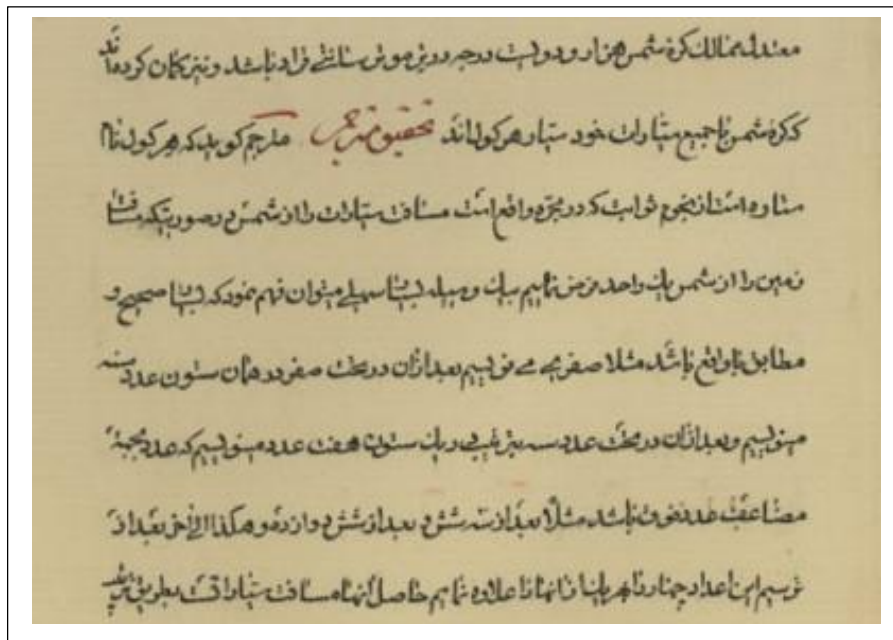 معتدله ممالک کرهٔ شمس هزار و دویست درجه درین موش سانتی قراد باشد و نیز کمان کرده‌اند
که کرهٔ شمس با جمیع سیّارات خود سیّار هرکول‌اند تحقیق مترجم مترجم کوید که هرکول نام
ستاره است از نجوم ثوابت که در مجرّه واقع است مسافت سیّارات را از شمس در صورتیکه مسافت
زمین را از شمس یک واحد فرض نماییم بیک وسیلهٔ بسیار سهلی میتوان فهم نمود که بسیار صحیح و
مطابق با واقع باشد مثلا صفر می نویسیم بعد از آن در تحت صفر در همان ستون عدد سه
مینویسیم و بعد از آن در تحت عدد سه بترتیبی در یک ستون هفت عدد مینویسیم که عدد
مضاعف عدد فوق باشد مثلاً بعد از سه شش و بعد از شش دوازده و هکذا الی آخر بعد از
ترسیم این اعداد چهار را بهر یک از آنها علاوه نماییم حاصل آنها مسافت سیّارات بطریق